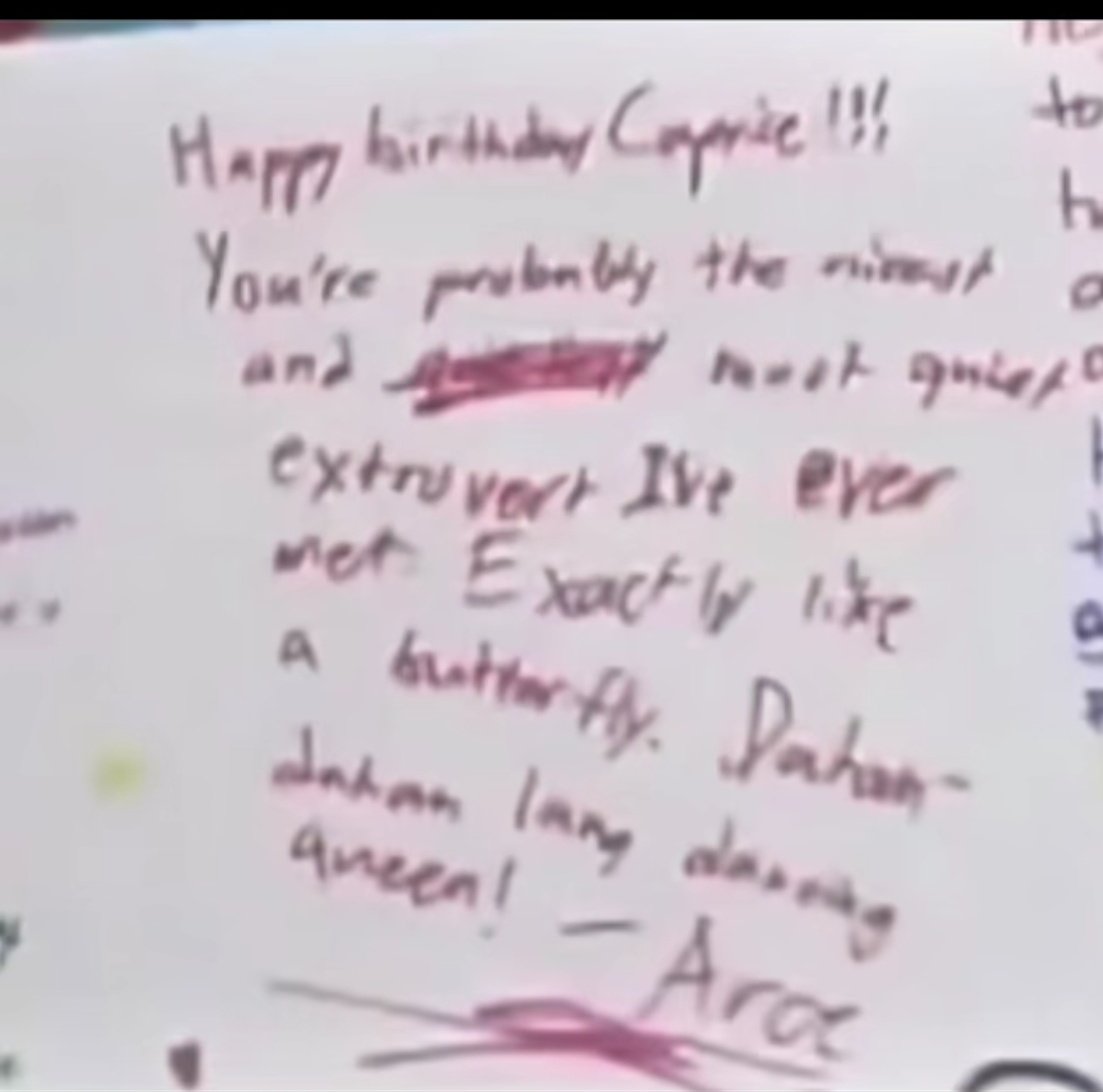 Happy birthday Caprice!!!
You're probably the nicest
and most quiet
extrovert I've ever
met Exactly like
a butterfly. Dahan-
dahan lang dancing
queen! —
to